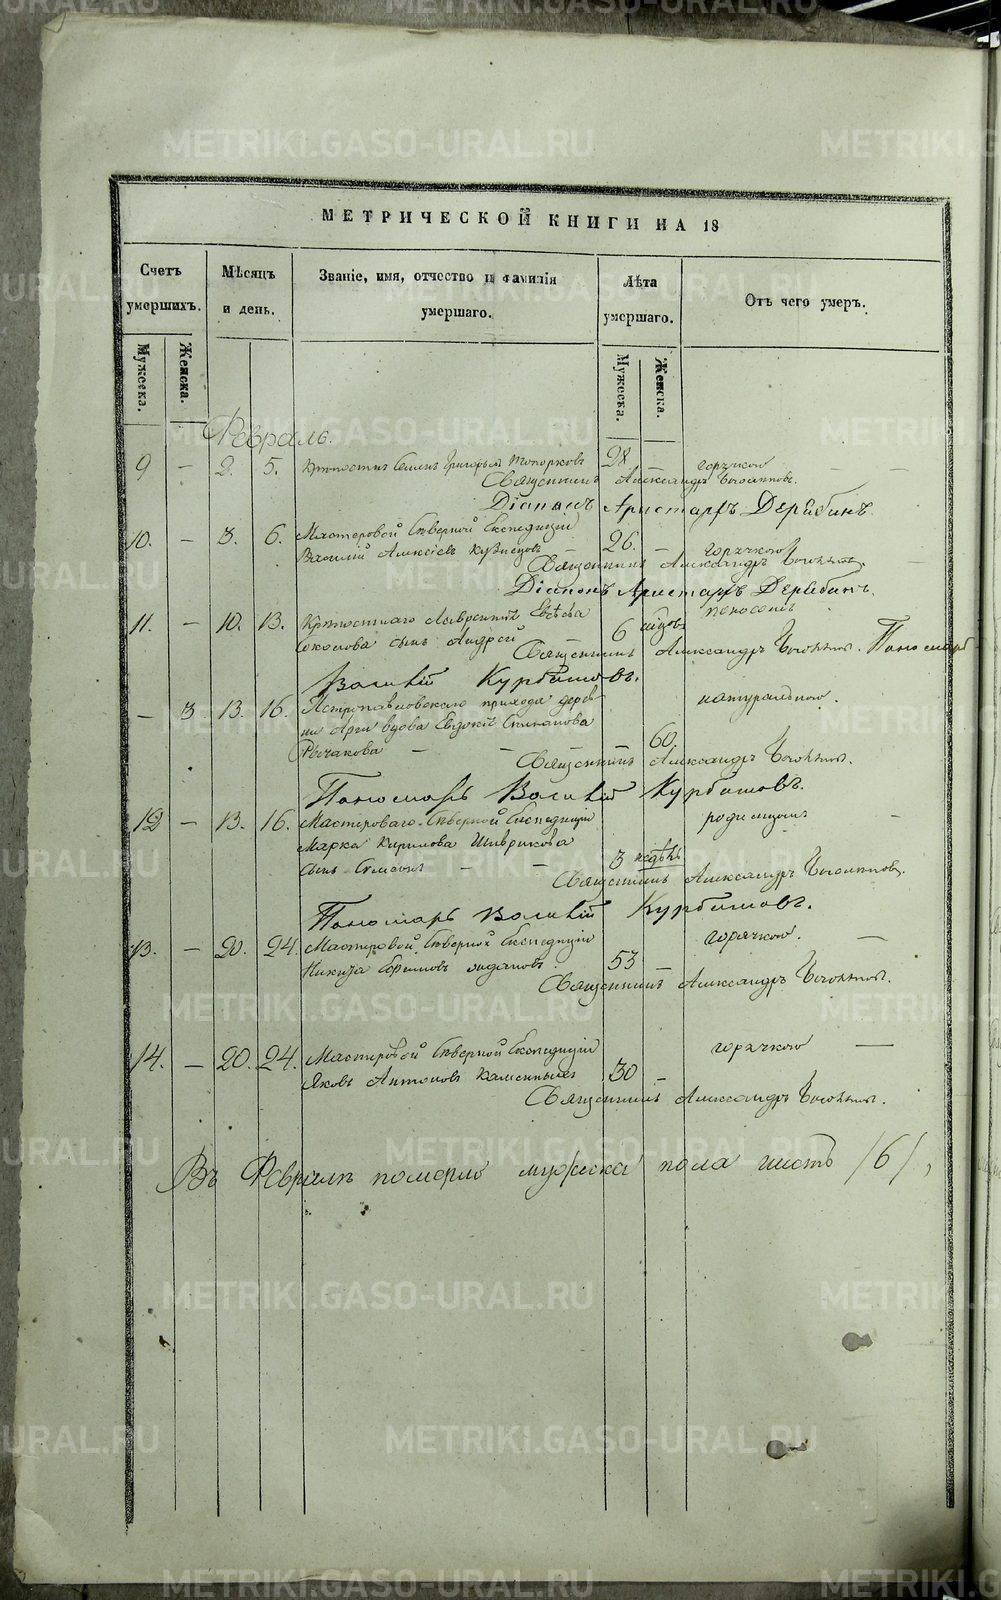 МЕТРИЧЕСКОЙ КНИГИ НА 18
Счетъ умершихъ.
Мѣсяцъ и день.
Званіе, имя, отчество и фамилія умершаго.
Лѣта умершаго.
Отъ чего умеръ.
Мужеска.
Женска.
Мужеска.
Женска.
Февраль.
9 — 2. 5. Григорьев Топорковъ 28 — горячкою
Священникъ Александръ
Діаконъ Аристархъ Дерябинъ.
10. — 3. 6. Мастеровой Сѣверной Експедиціи
Василий Алексѣевъ Кузнецовъ 26. — горячкою
Священникъ Александръ
Діаконъ Аристархъ Дерябинъ.
11. — 10. 13. Евсѣева
Соколова сынъ Андрей 6 поносомъ
Священникъ Александръ Пономарь
Василій Курбатовъ.
— 3 13. 16. Петропавловскаго прихода дерев
ни вдова Евдокія Степанова 60 натурально.
Священникъ Александръ
Пономарь Василій Курбатовъ.
12 — 13. 16. Мастероваго Сѣверной Експедиціи
Марка Кирилова
сынъ Симеонъ — — 3 недѣль родимцомъ —
Священникъ Александръ
Пономарь Василій Курбатовъ.
13. — 20. 24. Мастеровой Сѣверной Експедиціи
Никита Ефимовъ 53 — горячкою. —
Священникъ Александръ
14. — 20. 24. Мастеровой Сѣверной Експедиціи
Яковъ Антоновъ 30 — горячкою —
Священникъ Александръ
Въ Февралѣ померло мужеска пола шесть /6/,
METRIKI.GASO-URAL.RU